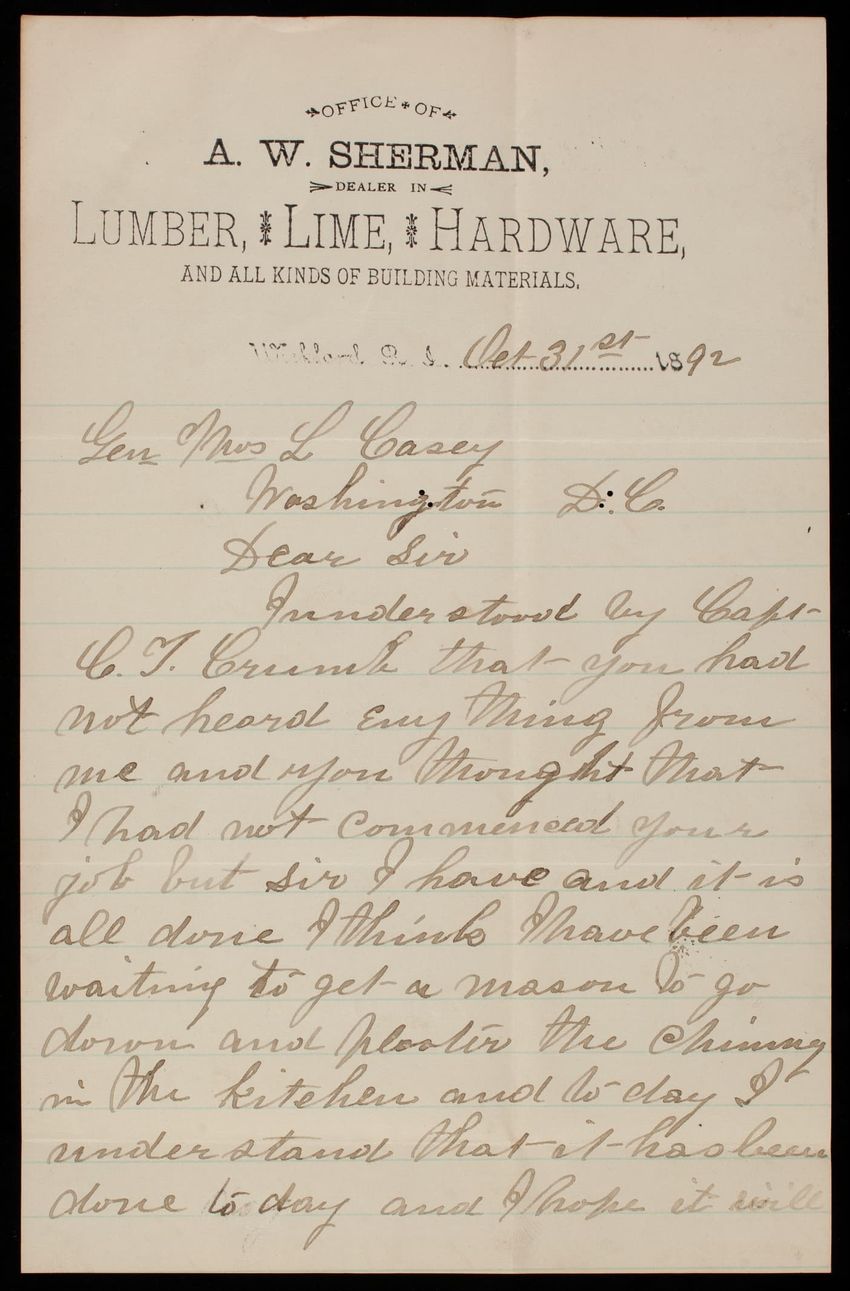 OFFICE OF
A. W. SHERMAN,
DEALER IN
LUMBER, LIME, HARDWARE,
AND ALL KINDS OF BUILDING MATERIALS,
R. I. Oct 31st 1892
Gen Thos L Casey
Washington D.C.
Dear Sir
I understood by Capt
C. T. Crumb that you had
not heard eny thing from
me and you thought that
I had not commenced your
job but sir I have and it is
all done I think I have been
waiting to get a mason to go
down and plaster the chimny
in the kitchen and to day I
understand that it has been
done to day and I hope it will